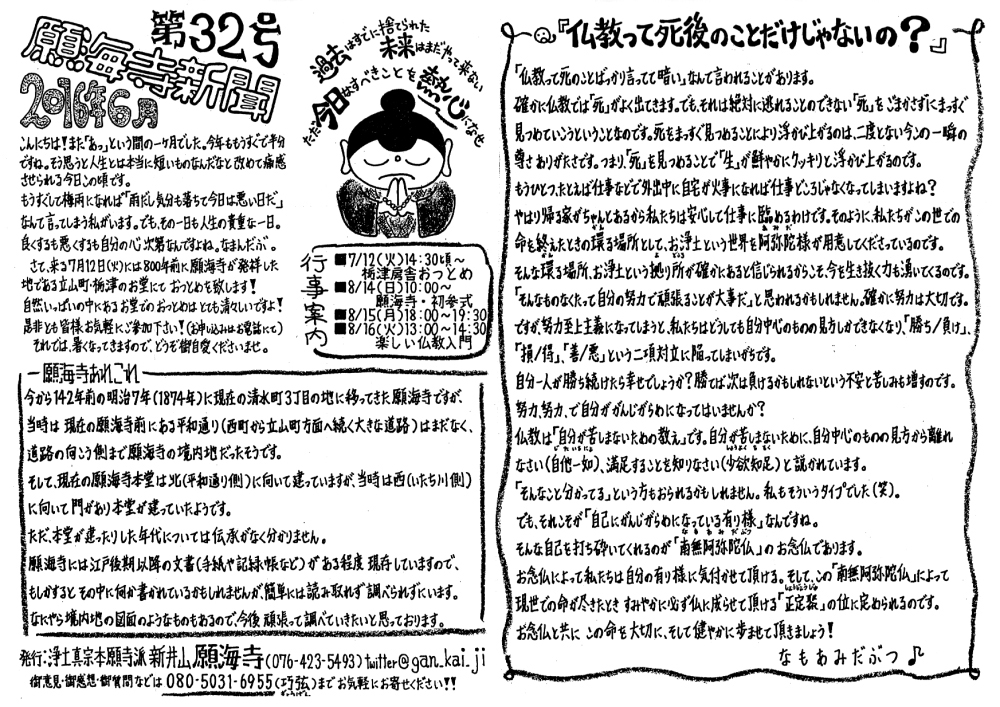 願海寺新聞
第32号
2016年6月
過去はすでに捨てられた
未来はまだやって来ない
ただ今日なすべきことを熱心になせ
こんにちは!まだ「あっ」という間の一ヶ月でした。今年ももうすぐで半分
ですね。そう思うと人生とは本当に短いものなんだなと改めて痛感
させられる今日この頃です。
もうすぐして梅雨になれば「雨だし気分も落ちて今日は悪い日だ」
なんて言ってしまう私がいます。でも、その一日も人生の貴重な一日。
良くするも悪くするも自分の心次第なんですよね。なまんだぶ。
さて、来る7月12日(火)には800年前に願海寺が発祥した
地である立山町・栃津のお堂にておつとめを致します!
自然いっぱいの中にあるお堂でのおつとめはとても清々しいですよ!
是非とも皆様お気軽にご参加下さい!(お申し込みはお電話にて)
それでは、暑くなってきますので、どうぞ御自愛くださいませ。
行事案内
■7/12(火)14:30頃~
栃津房舎おつとめ
■8/14(日)10:00~
願海寺・初参式
■8/15(月)18:00~19:30
■8/16(火)13:00~14:30
楽しい仏教入門
願海寺あれこれ
今から142年前の明治7年(1874年)に現在の清水町3丁目の地に移ってきた願海寺ですが、
当時は現在の願海寺前にある平和通り(西町から立山町方面へ続く大きな道路)はまだなく、
道路の向こう側まで願海寺の境内地だったそうです。
そして、現在の願海寺本堂は北(平和通り側)に向いて建っていますが、当時は西(いたち川側)
に向いて門があり本堂が建っていたようです。
ただ、本堂が建ったりした年代については伝承がなく分かりません。
願海寺には江戸後期以降の文書(手紙や記録帳など)がある程度現存していますので、
もしかするとその中に何か書かれているかもしれませんが、簡単には読み取れず調べられずにいます。
なにやら境内地の図面のようなものもあるので、今後頑張って調べていきたいと思っております。
発行:浄土真宗本願寺派 新井山 願海寺(076-423-5493)twitter@gan_kai.ji
御意見・御感想・御質問などは 080-5031-6955(巧弦)までお気軽にお寄せください!!
『仏教って死後のことだけじゃないの?』
「仏教って死のことばっかり言ってて暗い」なんて言われることがあります。
確かに仏教では「死」がよく出てきます。でも、それは絶対に逃れることのできない「死」をごまかさずにまっすぐ
見つめていこうということなのです。死をまっすぐ見つめることにより浮かび上がるのは、二度とない今この一瞬の
尊さありがたさです。つまり、「死」を見つめることで「生」が鮮やかにクッキリと浮かび上がるのです。
もうひとつ、たとえば仕事などで外出中に自宅が火事になれば仕事どころじゃなくなってしまいますよね?
やはり帰る家がちゃんとあるから私たちは安心して仕事に臨めるわけです。そのように、私たちがこの世での
命を終えたときの還る場所として、お浄土という世界を阿弥陀様が用意してくださっているのです。
そんな還る場所、お浄土という拠り所が確かにあると信じられるからこそ、今を生き抜く力も湧いてくるのです。
「そんなものなくたって自分の努力で頑張ることが大事だ」と思われるかもしれません。確かに努力は大切です。
ですが、努力至上主義になってしまうと、私たちはどうしても自分中心のものの見方しかできなくなり、「勝ち/負け」、
「損/得」、「善/悪」という二項対立に陥ってしまいがちです。
自分一人が勝ち続けたら幸せでしょうか?勝てば次は負けるかもしれないという不安と苦しみも増すのです。
努力、努力、で自分ががんじがらめになってはいませんか?
仏教は「自分が苦しまないための教え」です。自分が苦しまないために、自分中心のものの見方から離れ
なさい(自他一如)、満足することを知りなさい(少欲知足)と説かれています。
「そんなこと分かってる」という方もおられるかもしれません。私もそういうタイプでした(笑)。
でも、それこそが「自己にがんじがらめになっている有り様」なんですね。
そんな自己を打ち砕いてくれるのが「南無阿弥陀仏」のお念仏であります。
お念仏によって私たちは自分の有り様に気付かせて頂ける。そして、この「南無阿弥陀仏」によって
現世での命が尽きたときすみやかに必ず仏に成らせて頂ける「正定聚」の位に定められるのです。
お念仏と共にこの命を大切に、そして健やかに歩ませて頂きましょう!
なもあみだぶつ♪